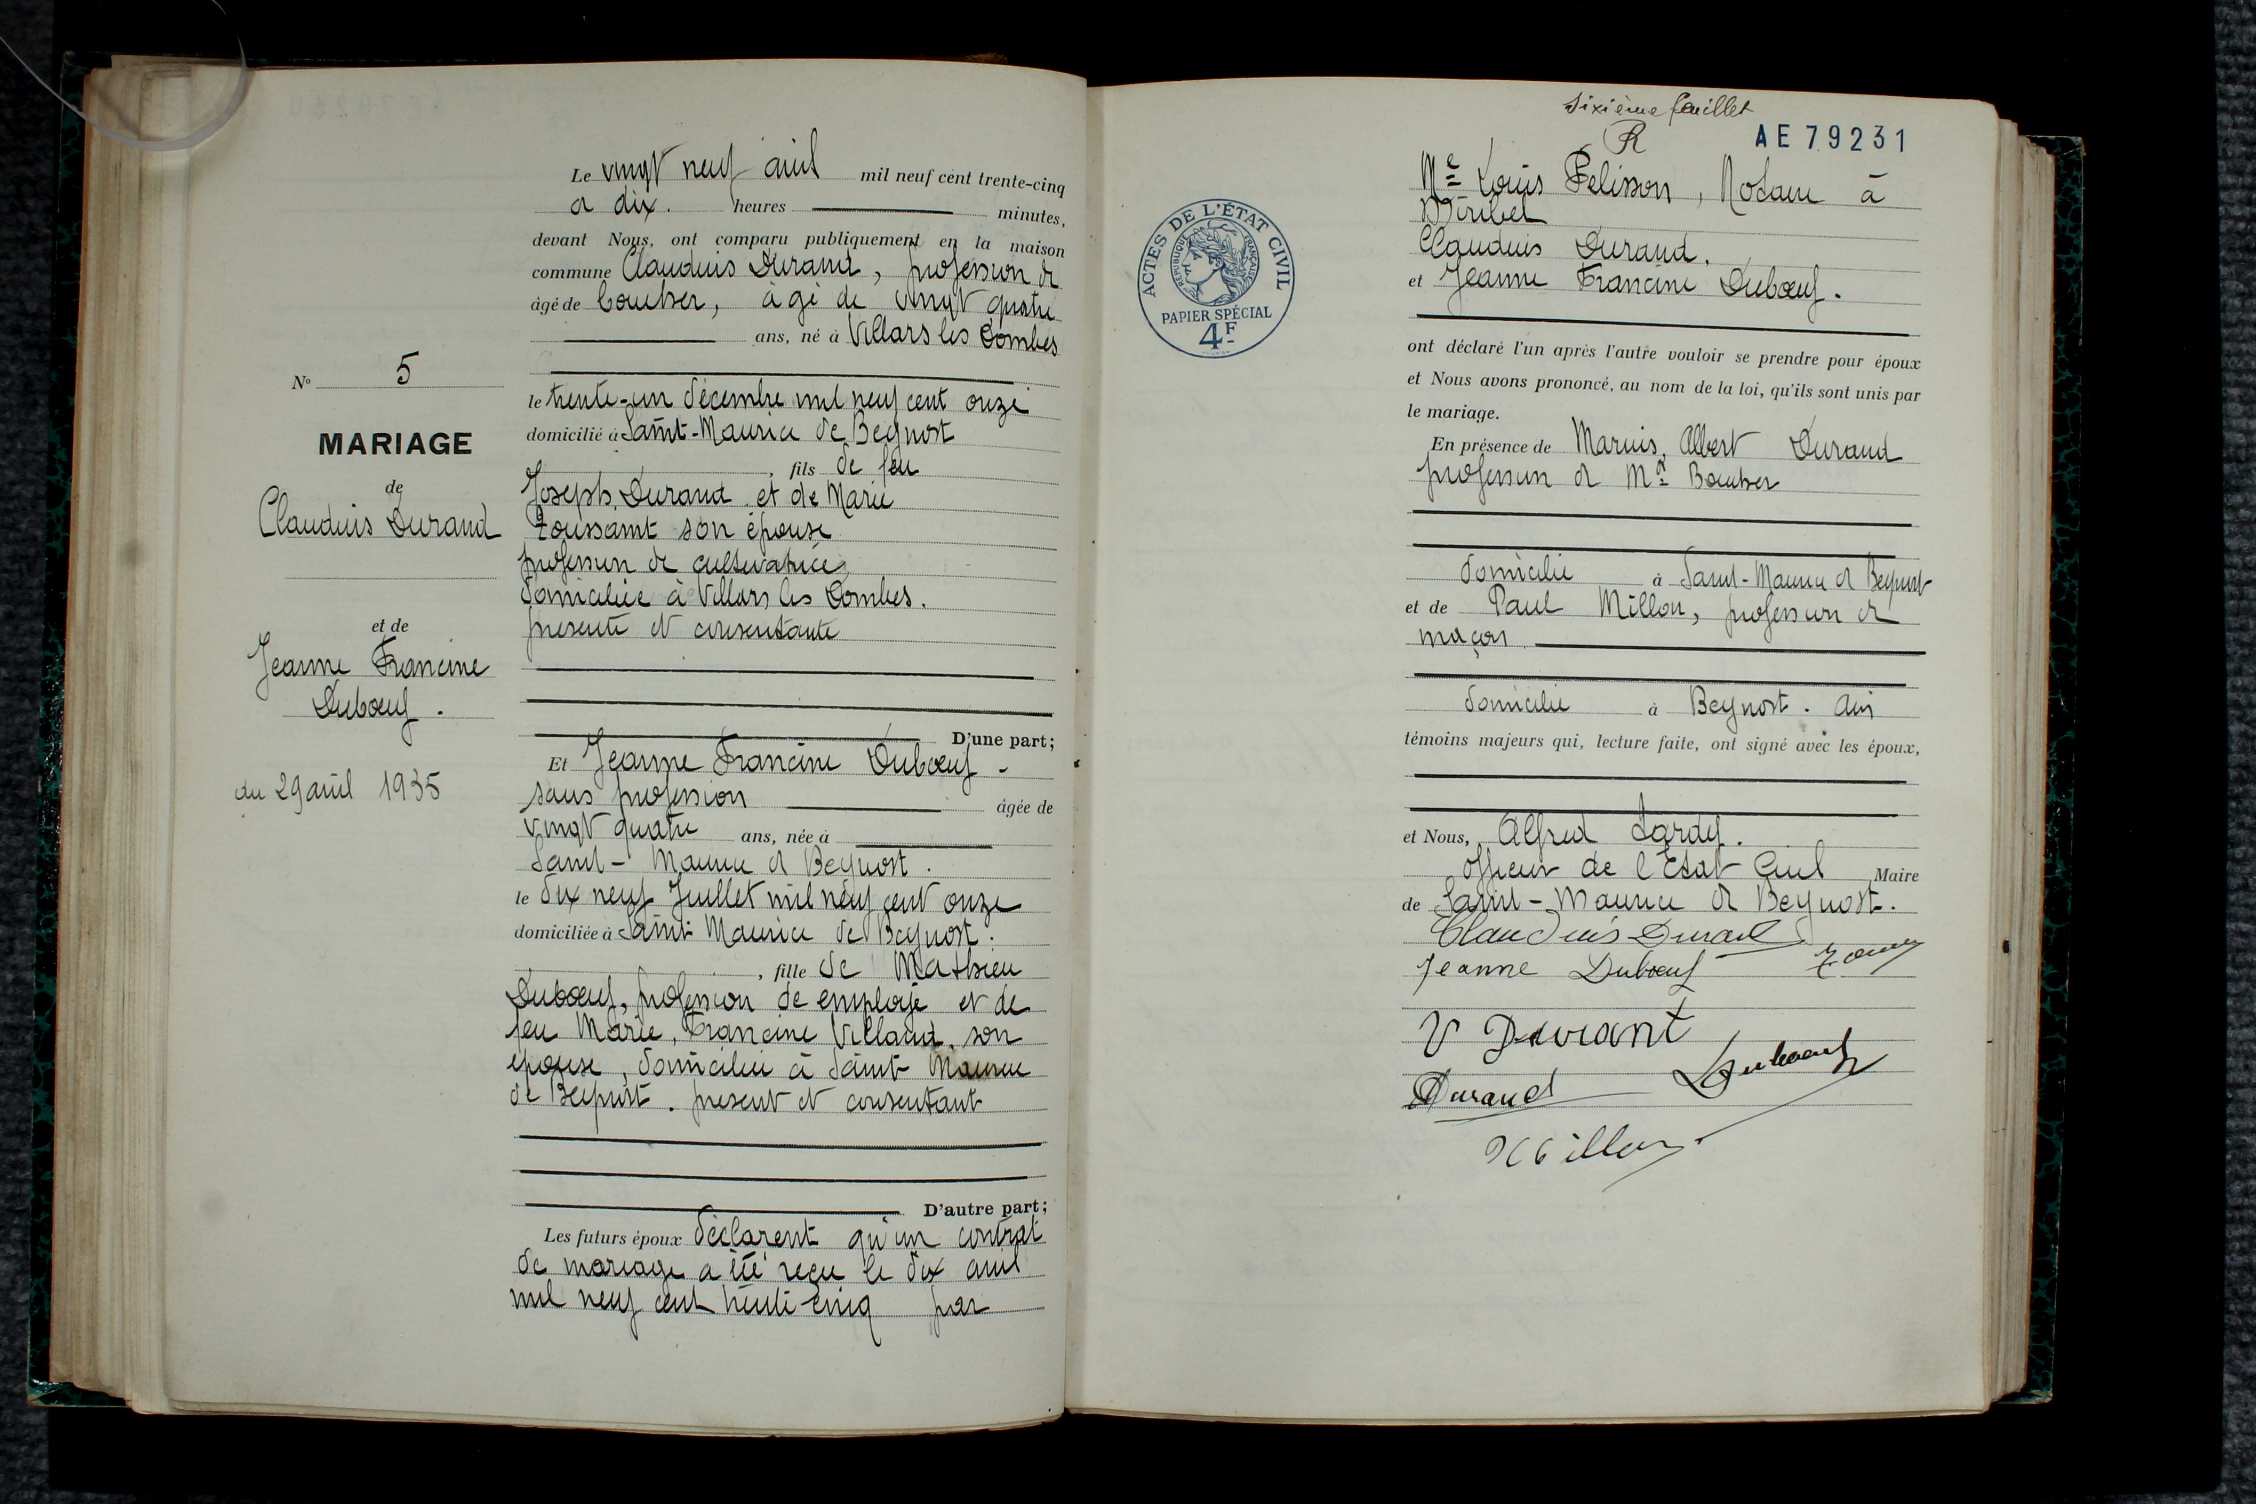 Le vingt neuf avril mil neuf cent trente-cinq
à dix. heures minutes,
devant Nous, ont comparu publiquement en la maison
commune Claudius Durand, profession de
âgé de Boucher, âgé de vingt quatre
ans, né à Villars les Dombes
No 5
le trente-un décembre mil neuf cent onze
domicilié à Saint-Maurice de Beynost
MARIAGE
, fils de feu
de
Joseph Durand et de Marie
Claudius Durand
Toussaint son épouse
profession de cultivatrice
domiciliée à Villars les Dombes.
et de
présente et consentante
Jeanne Francine
Dubœuf.
D'une part;
Et Jeanne Francine Dubœuf -
du 29 avril 1935
sans profession âgée de
vingt quatre ans, née à
Saint-Maurice de Beynost.
le dix neuf Juillet mil neuf cent onze
domiciliée à Saint Maurice de Beynost.
, fille de Mathieu
Dubœuf, profession de employé et de
feu Marie, Francine Villand, son
épouse, domicilié à Saint Maurice
de Beynost. présent et consentant
D'autre part;
Les futurs époux déclarent qu'un contrat
de mariage a été reçu le dix avril
mil neuf cent trente cinq par
Sixième feuillet
R
AE 79231
ACTES DE L'ÉTAT CIVIL
RÉPUBLIQUE FRANÇAISE
PAPIER SPÉCIAL
4F
Me Louis Pelisson, Notaire à
Miribel
Claudius Durand.
et Jeanne Francine Dubœuf.
ont déclaré l'un après l'autre vouloir se prendre pour époux
et Nous avons prononcé, au nom de la loi, qu'ils sont unis par
le mariage.
En présence de Marius, Albert Durand
profession de Md Boucher
domicilié à Saint-Maurice de Beynost
et de Paul Millon, profession de
maçon
domicilié à Beynost. Ain
témoins majeurs qui, lecture faite, ont signé avec les époux,
et Nous, Alfred Lardy.
officier de l'Etat Civil Maire
de Saint-Maurice de Beynost.
Claudius Durand
Jeanne Dubœuf
V Durant
Dubœuf
Durand
Millon